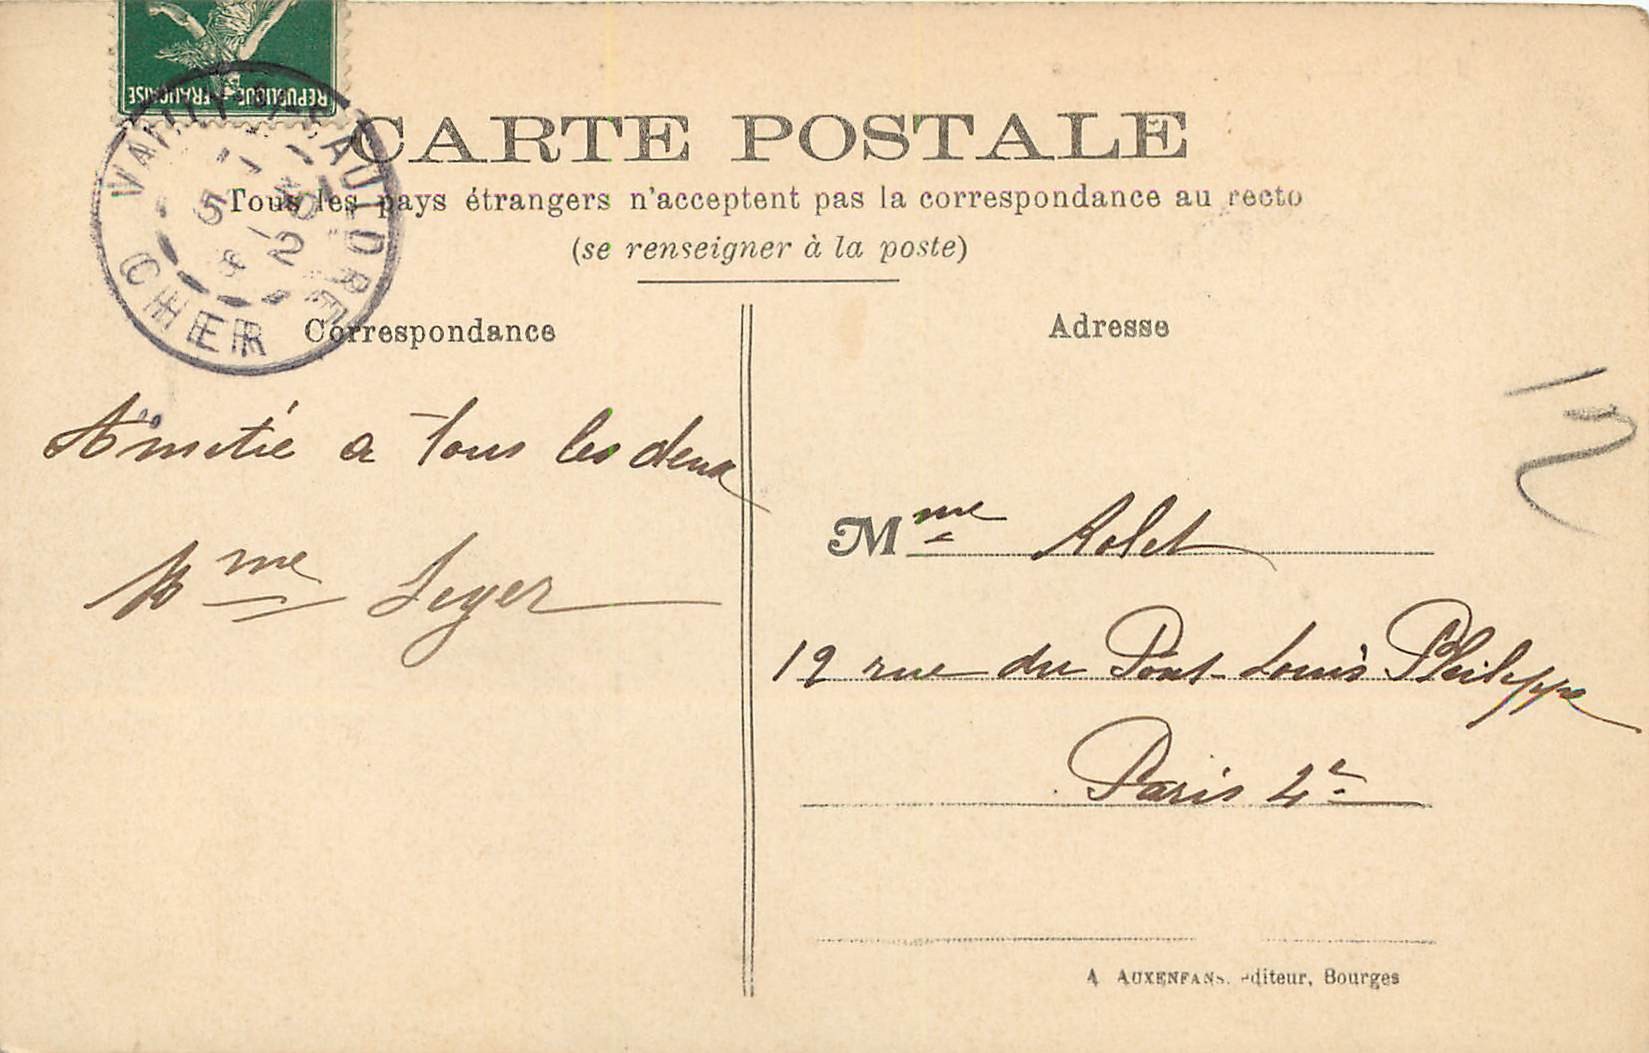 REPUBLIQUE FRANÇAISE
CARTE POSTALE
Tous les pays étrangers n'acceptent pas la correspondance au recto
(se renseigner à la poste)
CHER
Correspondance
Amitié a tous les deux
Mme Leger
Adresse
Mme Rolet
12 rue du Pont-Louis Philippe
Paris 4e
A. AUXENFANS, éditeur, Bourges